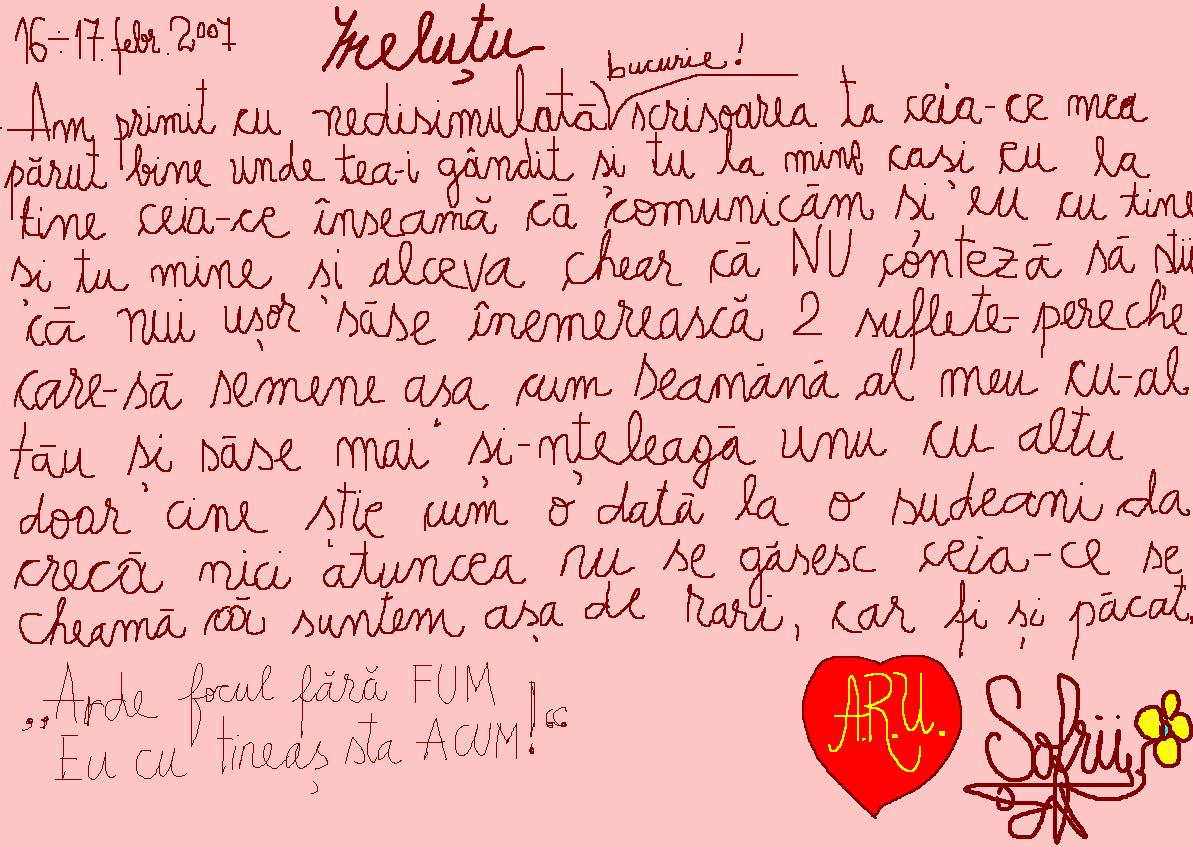 16-17. febr. 2007
Ineluțu
bucurie!
Am primit cu nedisimulată scrisoarea ta ceia-ce mea
părut bine unde tea-i gândit și tu la mine cași eu la
tine ceia-ce înseamă că comunicăm și eu cu tine
și tu mine și alceva chear că NU conteză să știi
că nui ușor săse înemerească 2 suflete-pereche
care-să semene așa cum seamănă al meu cu-al
tău și săse mai și-nțeleagă unu cu altu
doar cine știe cum o dată la o sudeani da
crecă nici atuncea nu se găsesc ceia-ce se
cheamă că suntem așa de rari, car fi și păcat.
„Arde focul fără FUM
Eu cu tineaș sta ACUM!“
A.R.U.
Sofrii